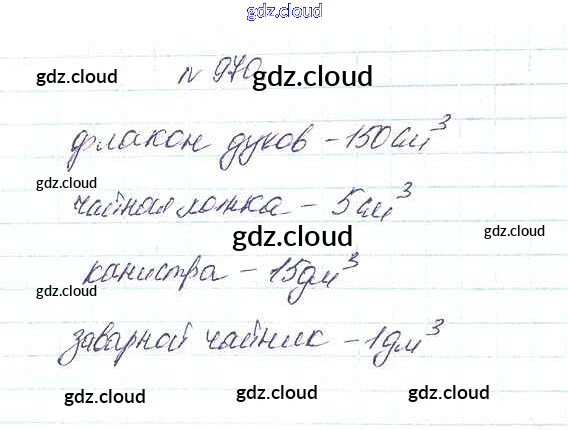 gdz.cloud
gdz.cloud
N 970 gdz.cloud gdz.cloud
флакон духов - 150 см³
gdz.cloud gdz.cloud
чайная ложка - 5 см³
gdz.cloud gdz.cloud
канистра - 15 дм³
gdz.cloud gdz.cloud
заварной чайник - 1 дм³
gdz.cloud gdz.cloud gdz.cloud